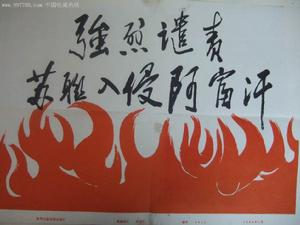 www.997788.com 中国收藏热线
強烈谴责
苏联入侵阿富汗